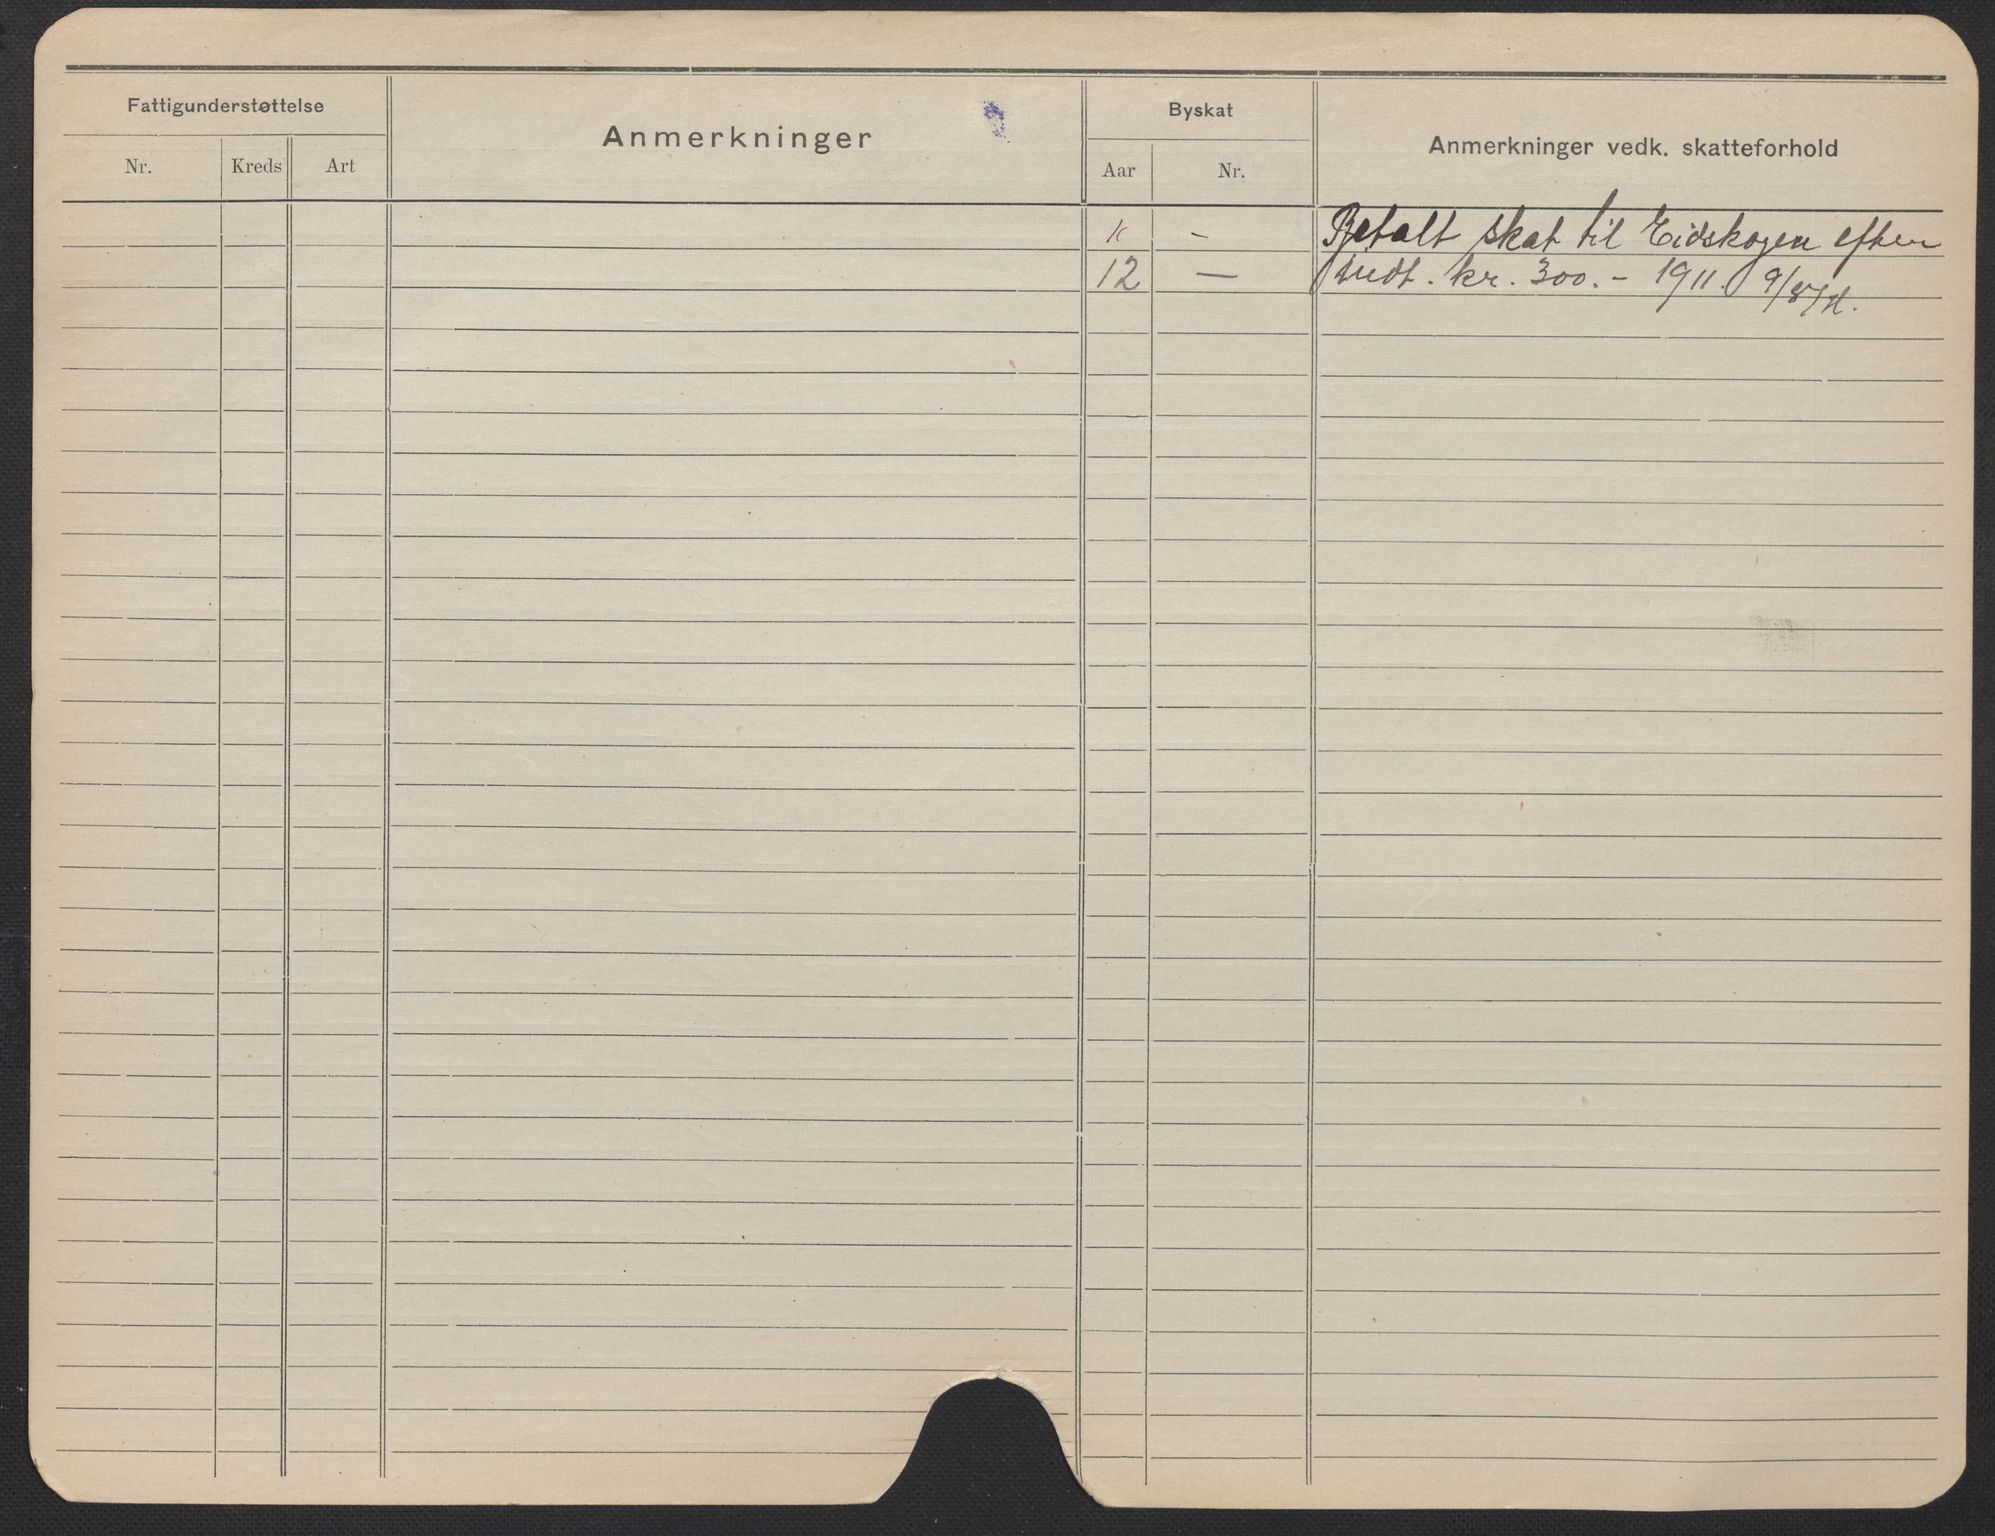 Fattigunderstøttelse
Anmerkninger
Byskat
Anmerkninger vedk. skatteforhold
Nr.
Kreds
Art
Aar
Nr.
11 – Betalt skat til Eidskogen efter
12 — indt. kr. 300.- 1911. 9/8